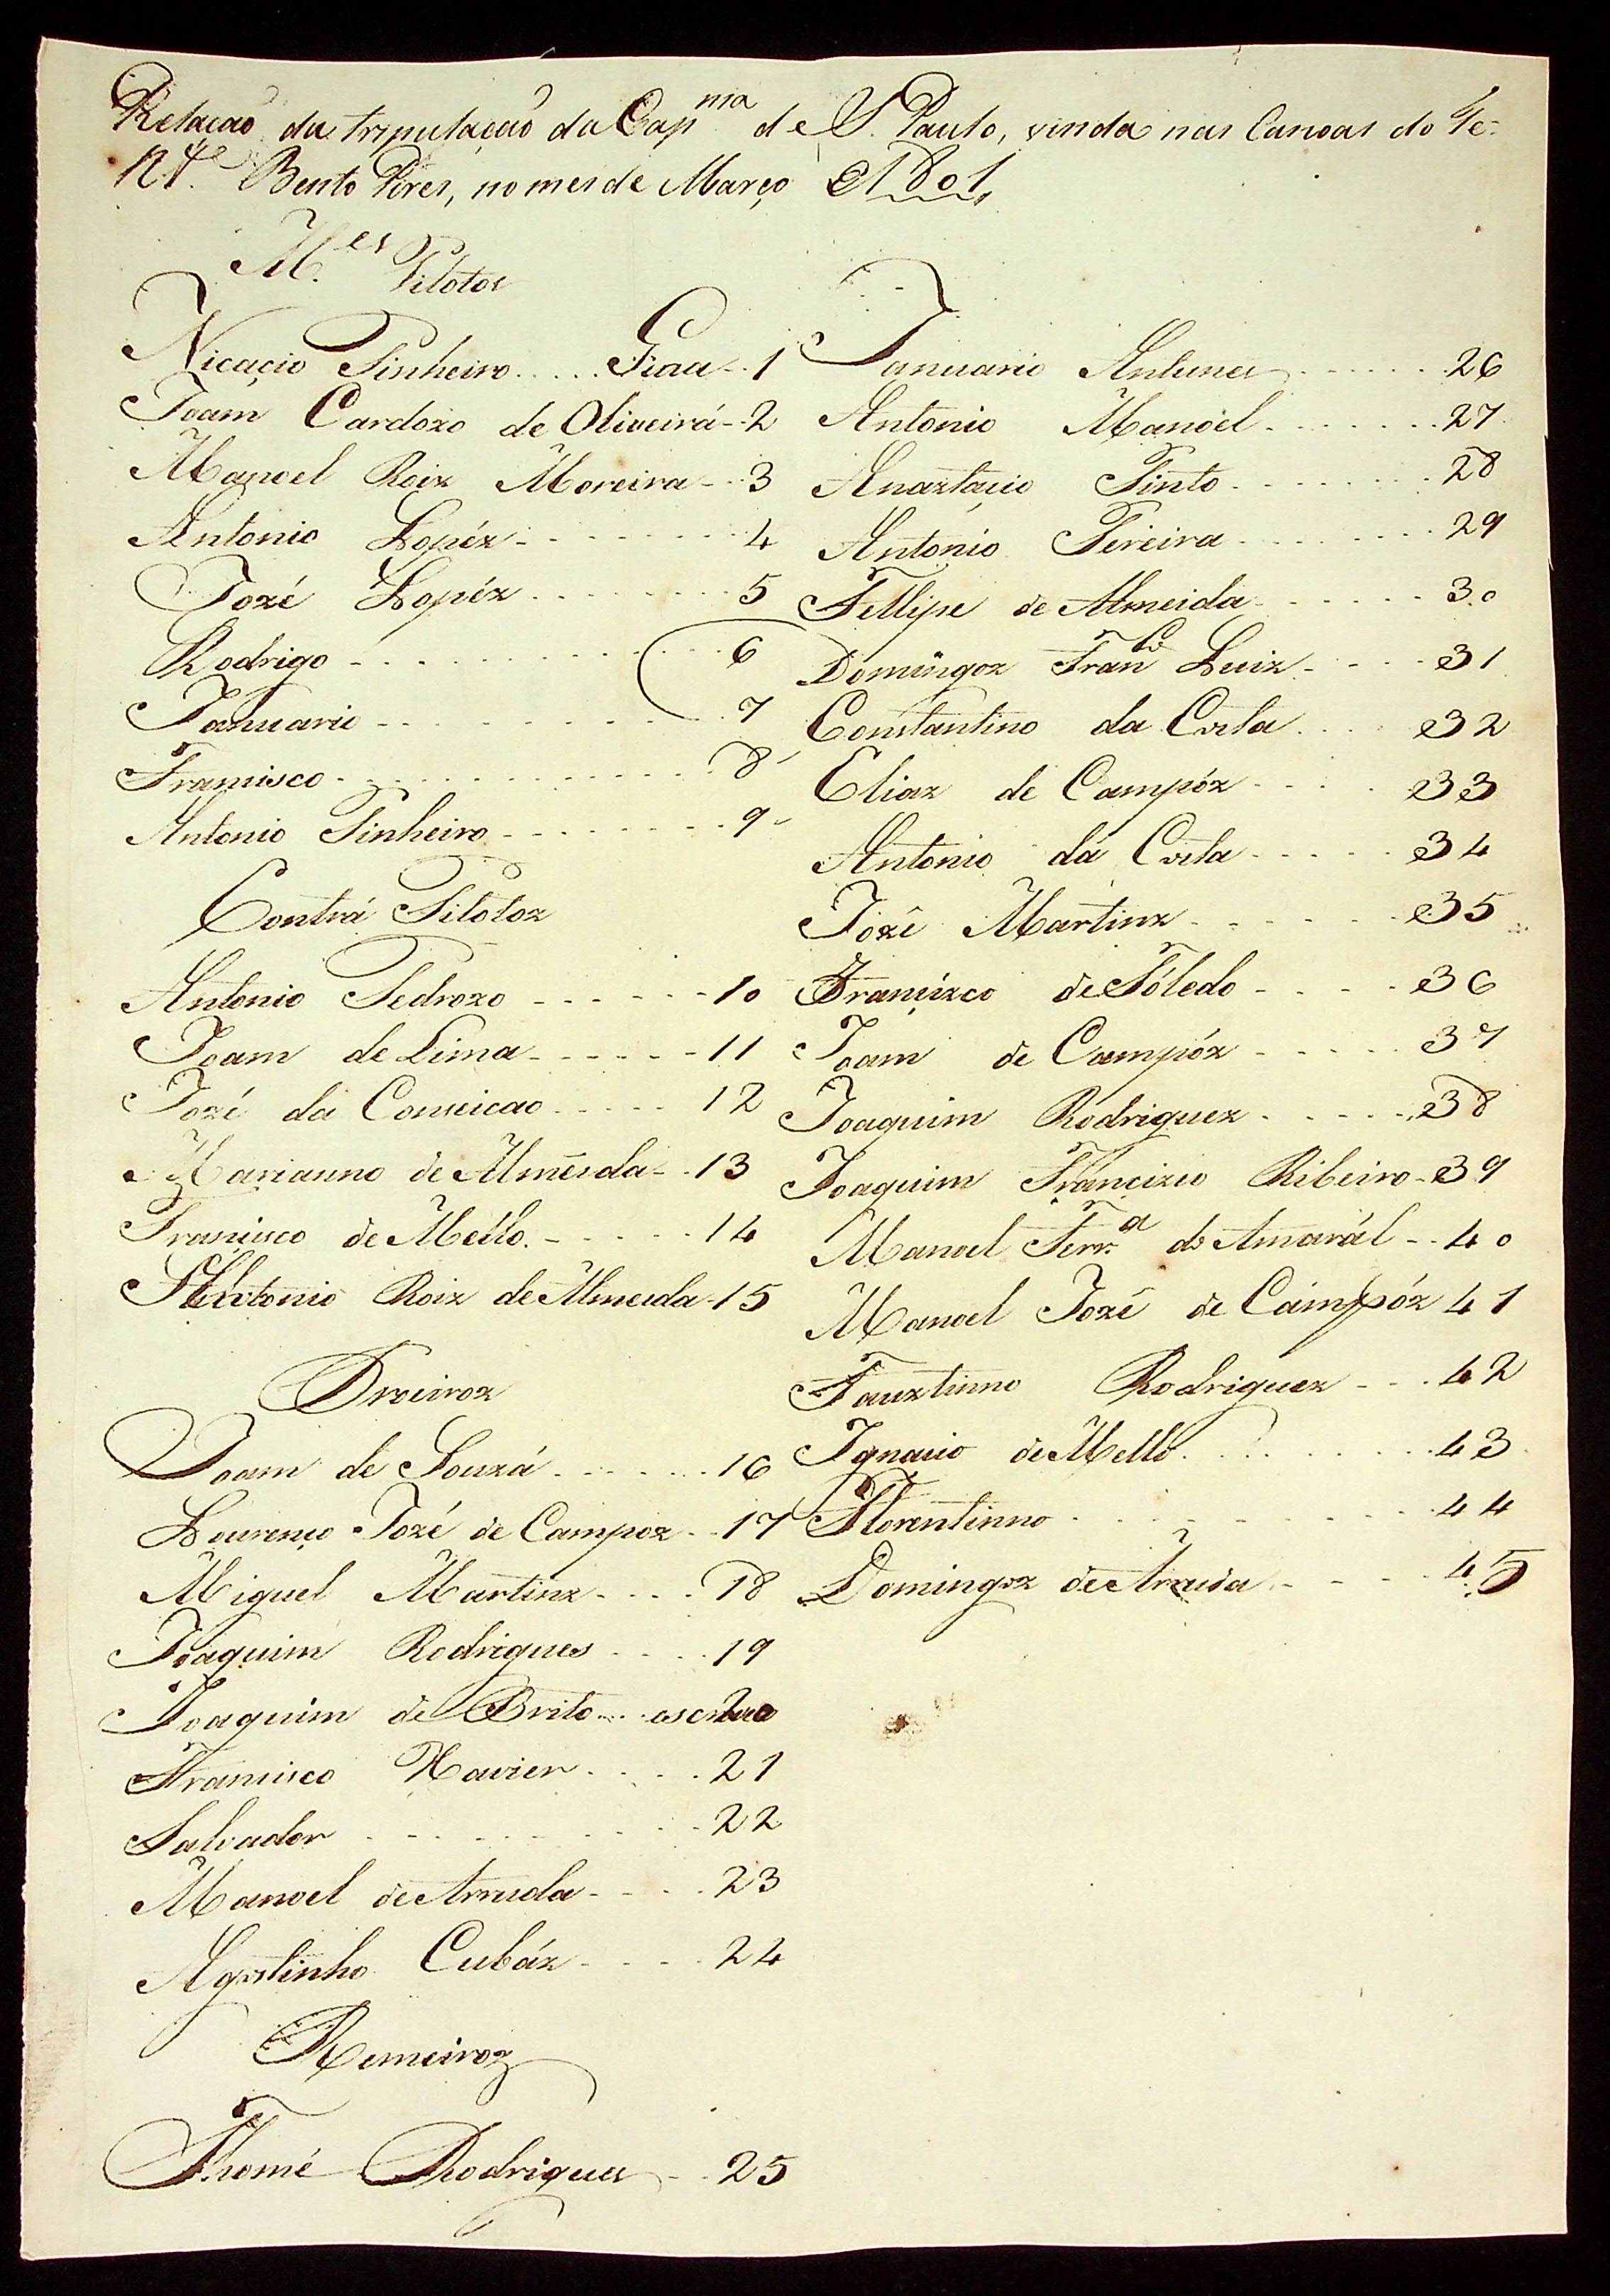 Relação da tripulação da Cap.nia de S. Paulo, vinda nas Canoas do Te-
n.te Bento Pires, no mes de Março 1801
M.es Pilotos
Nicaçio Pinheiro Guia 1
Joam Cardozo de Oliveirá 2
Manoel Roiz Moreira 3
Antonio Lopéz 4
Jozé Lopéz 5
Rodrigo 6
Januario 7
Francisco 8
Antonio Pinheiro 9
Contrá Pilotoz
Antonio Pedrozo 10
Joam de Lima 11
Jozé da Conceicao 12
Marianno de Almeida 13
Françisco de Mello 14
Antonio Roiz de Almeida 15
Proeiroz
Joam de Souzá 16
Lourenço Jozé de Campoz 17
Miguel Martinz 18
Joaquim Rodrigues 19
Joaquim de Brito escravo 20
Francisco Xavier 21
Salvador 22
Manoel de Arruda 23
Agostinho Cubáz 24
Remeiroz
Thomé Rodrigues 25
Januario Antunes 26
Antonio Manoel 27
Anaztaçio Pinto 28
Antonio Pereira 29
Fellipe de Almeida 30
Domingoz Fran.co Luiz 31
Constantino da Costa 32
Eliaz de Campóz 33
Antonio dá Costa 34
Jozê Martinz 35
Françizco de Tóledo 36
Joam de Campóz 37
Joaquim Rodriguez 38
Joaquim Françizco Ribeiro 39
Manoel Ferr.a do Amarál 40
Manoel Jozê de Campóz 41
Fauztinno Rodriguez 42
Ignacio de Mello 43
Florentinno 44
Domingoz de Arruda 45